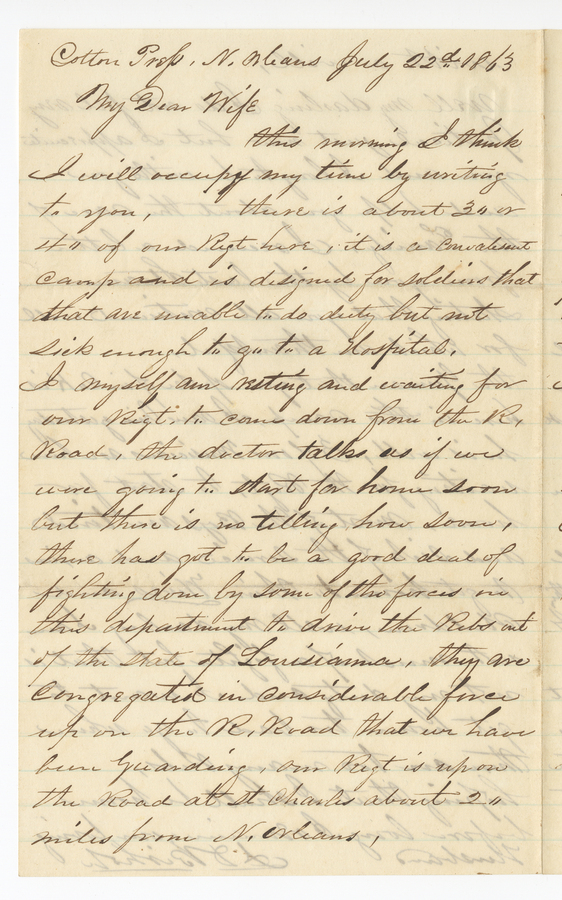 Cotton Press, N. Orleans July 22nd 1863
My Dear Wife
this morning I think
I will occupy my time by writing
to you, there is about 3" or
4" of our Rigt here, it is a convalesent
camp and is designed for soldiers that
that are unable to do duty but not
sick enough to go to a Hospital.
I myself am resting and waiting for
our Rigt. to come down from the R.
Road, the doctor talks as if we
were going to start for home soon
but there is no telling how soon,
there has got to be a good deal of
fighting done by some of the forces in
this department to drive the Rebs out
of the state of Louisianna, they are
Congregated in considerable force
up on the R. Road that we have
been guarding, our Rigt is upon
the Road at St Charles about 2"
miles from N. Orleans,